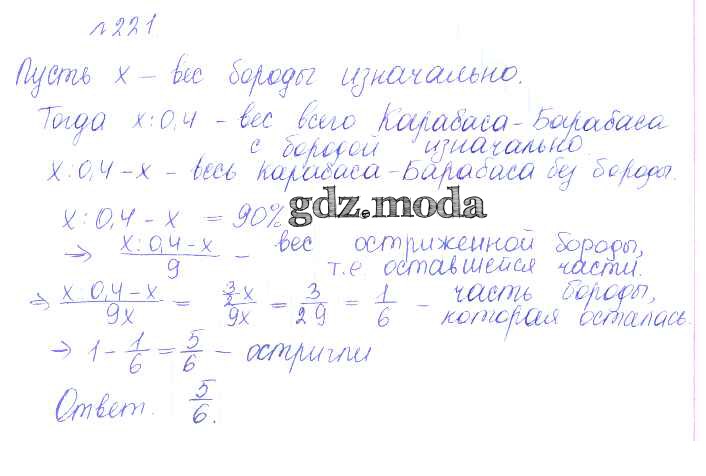 №221.
Пусть x – вес бороды изначально.
Тогда x:0,4 – вес всего Карабаса-Барабаса
с бородой изначально.
x:0,4–x – весь Карабаса-Барабаса без бороды.
x:0,4–x = 90%
gdz.moda
⇒ (x:0,4–x)/9 – вес остриженной бороды,
т.е оставшейся части.
⇒ (x 0,4–x)/9x = (3/2 x)/9x = 3/2 9 = 1/6 – часть бороды,
которая осталась.
⇒ 1 – 1/6 = 5/6 – остригли
Ответ. 5/6.